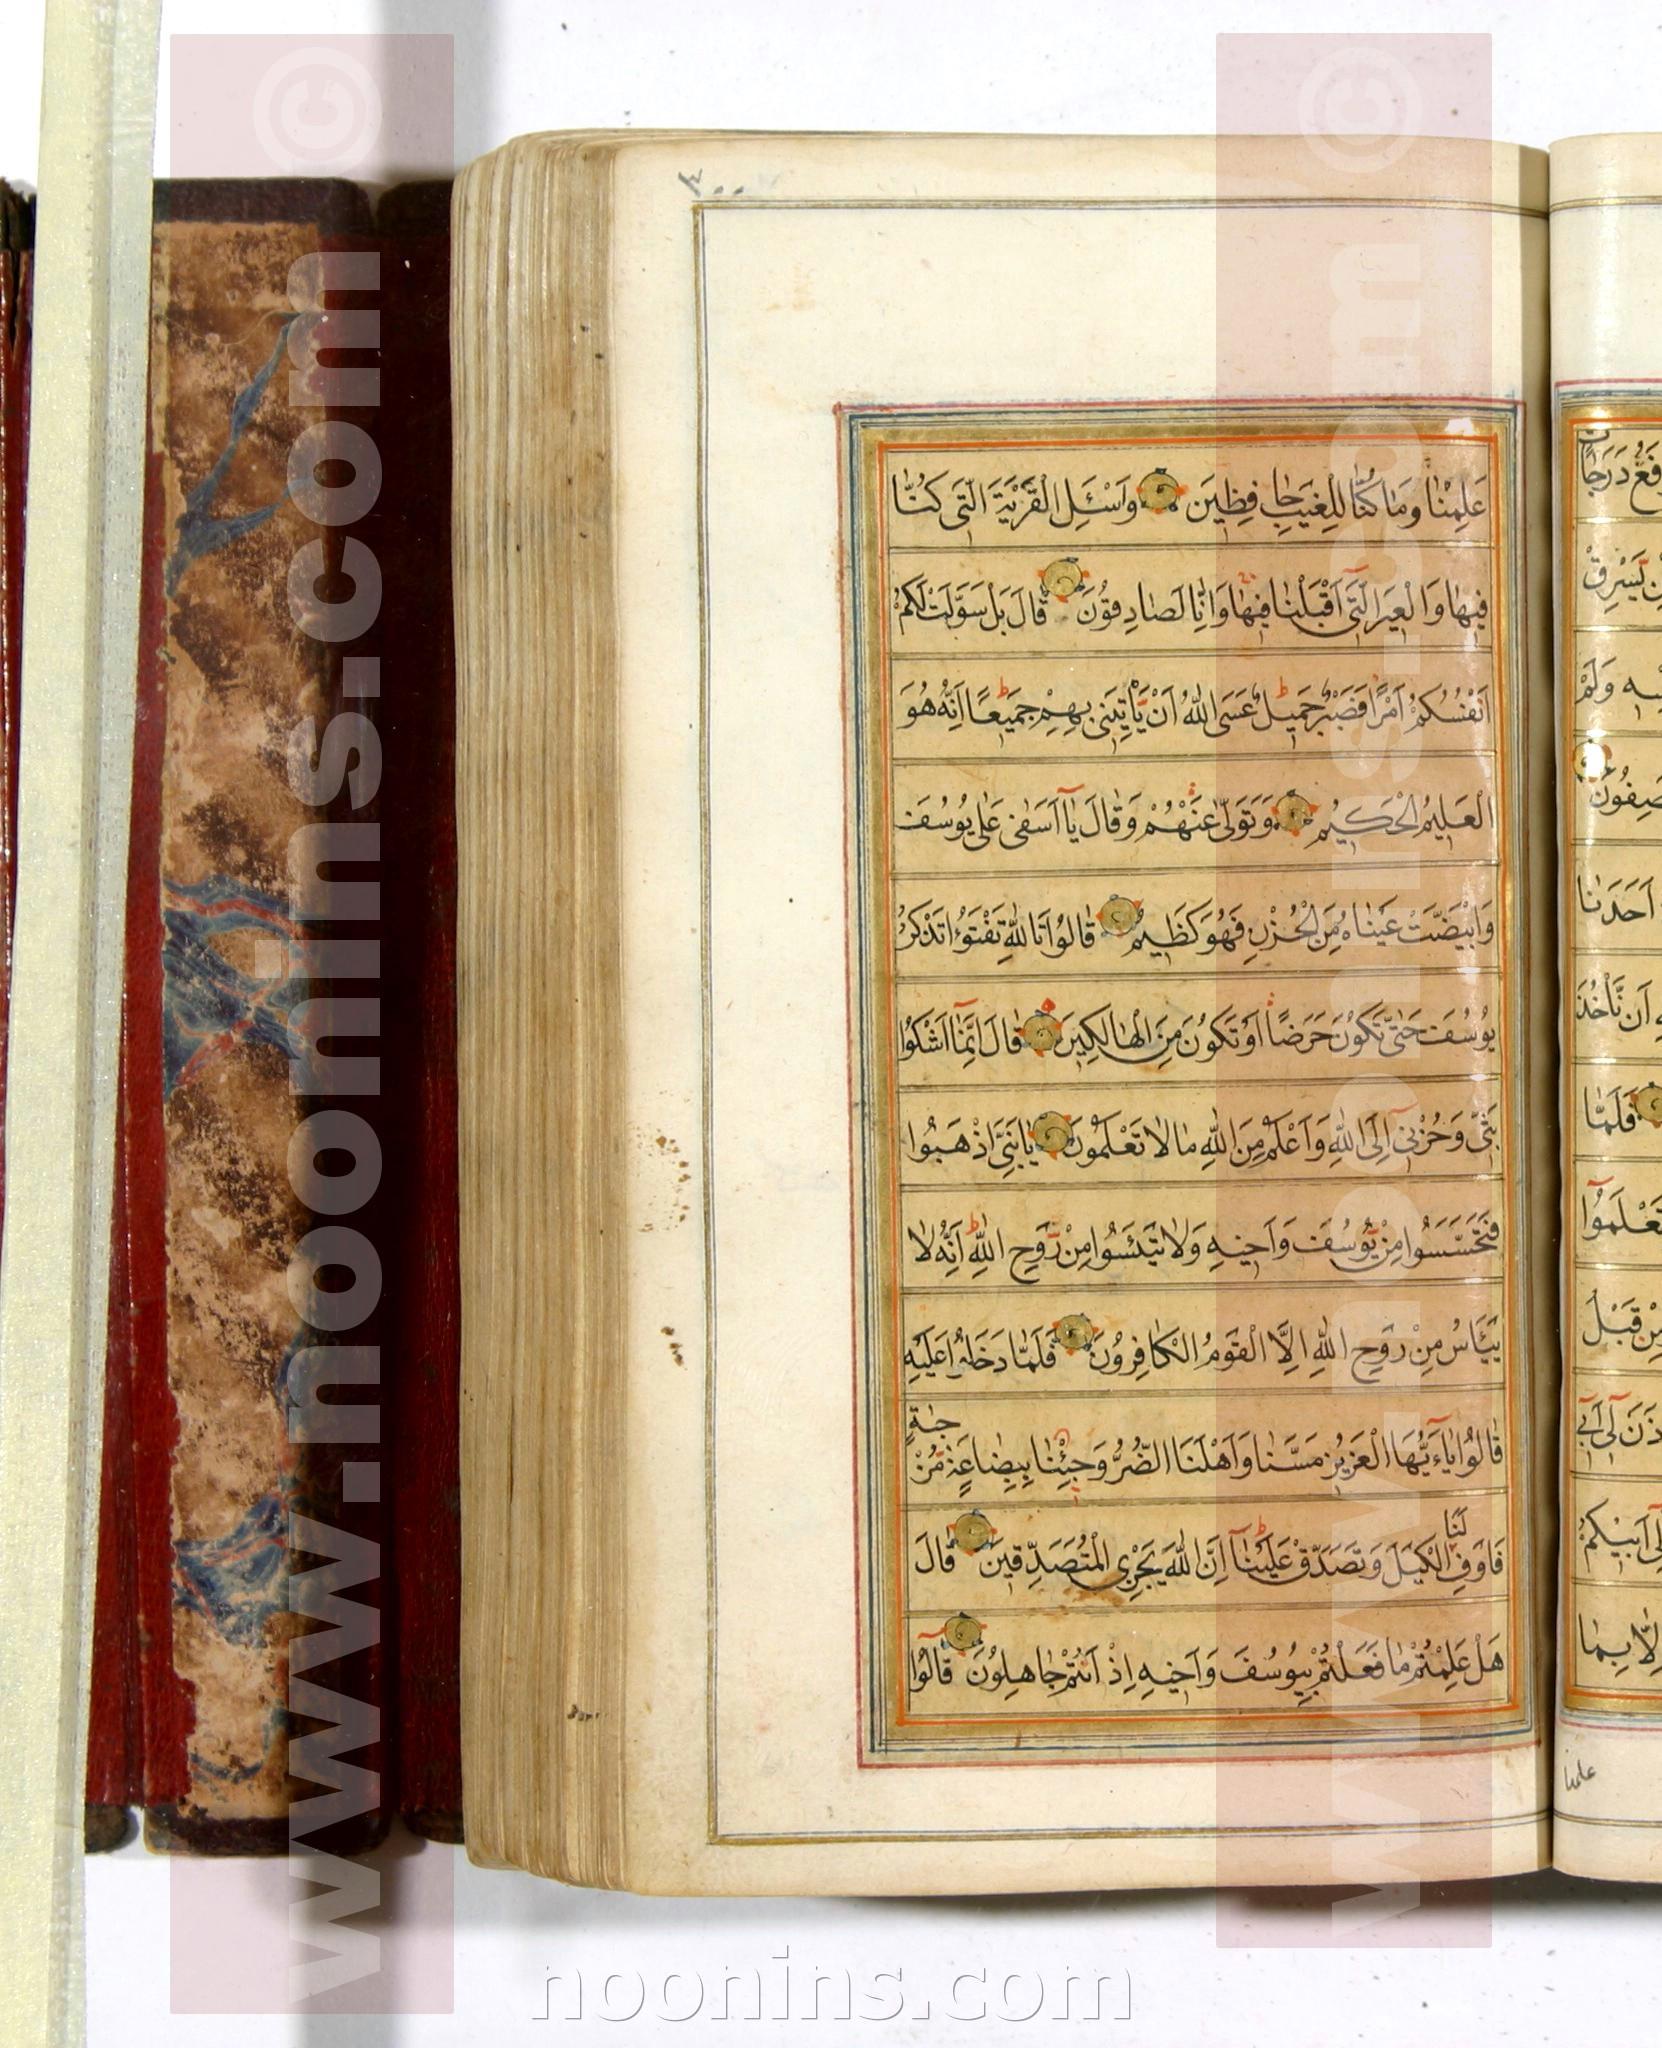 ٣٠٠
عَلِمْنٰا وَمٰا كُنّٰا لِلْغَيْبِ حٰافِظِينَ وَاسْئَلِ الْقَرْيَةَ الَّتِى كُنّٰا
فِيهٰا وَالْعِيرَ الَّتِى اَقْبَلْنٰا فِيهٰا وَاِنّٰا لَصٰادِقُونَ قٰالَ بَلْ سَوَّلَتْ لَكُمْ
اَنْفُسُكُمْ اَمْرًا فَصَبْرٌ جَمِيلٌ عَسَى اللّٰهُ اَنْ يَأْتِيَنِى بِهِمْ جَمِيعًا اِنَّهُ هُوَ
الْعَلِيمُ الْحَكِيمُ وَتَوَلّٰى عَنْهُمْ وَقٰالَ يٰآ اَسَفٰى عَلٰى يُوسُفَ
وَابْيَضَّتْ عَيْنٰاهُ مِنَ الْحُزْنِ فَهُوَ كَظِيمٌ قٰالُوا تَاللّٰهِ تَفْتَؤُا تَذْكُرُ
يُوسُفَ حَتّٰى تَكُونَ حَرَضًا اَوْ تَكُونَ مِنَ الْهٰالِكِينَ قٰالَ اِنَّمٰآ اَشْكُوا
بَثِّى وَحُزْنِى اِلَى اللّٰهِ وَاَعْلَمُ مِنَ اللّٰهِ مٰا لٰا تَعْلَمُونَ يٰا بَنِىَّ اذْهَبُوا
فَتَحَسَّسُوا مِنْ يُوسُفَ وَاَخِيهِ وَلٰا تَيْئَسُوا مِنْ رَوْحِ اللّٰهِ اِنَّهُ لٰا
يَيْأَسُ مِنْ رَوْحِ اللّٰهِ اِلَّا الْقَوْمُ الْكٰافِرُونَ فَلَمّٰا دَخَلُوا عَلَيْهِ
قٰالُوا يٰآ اَيُّهَا الْعَزِيزُ مَسَّنٰا وَاَهْلَنَا الضُّرُّ وَجِئْنٰا بِبِضٰاعَةٍ مُزْجٰةٍ
فَاَوْفِ لَنَا الْكَيْلَ وَتَصَدَّقْ عَلَيْنٰآ اِنَّ اللّٰهَ يَجْزِى الْمُتَصَدِّقِينَ قٰالَ
هَلْ عَلِمْتُمْ مٰا فَعَلْتُمْ بِيُوسُفَ وَاَخِيهِ اِذْ اَنْتُمْ جٰاهِلُونَ قٰالُوا
علمنا
www.noonins.com ©
www.noonins.com ©
noonins.com